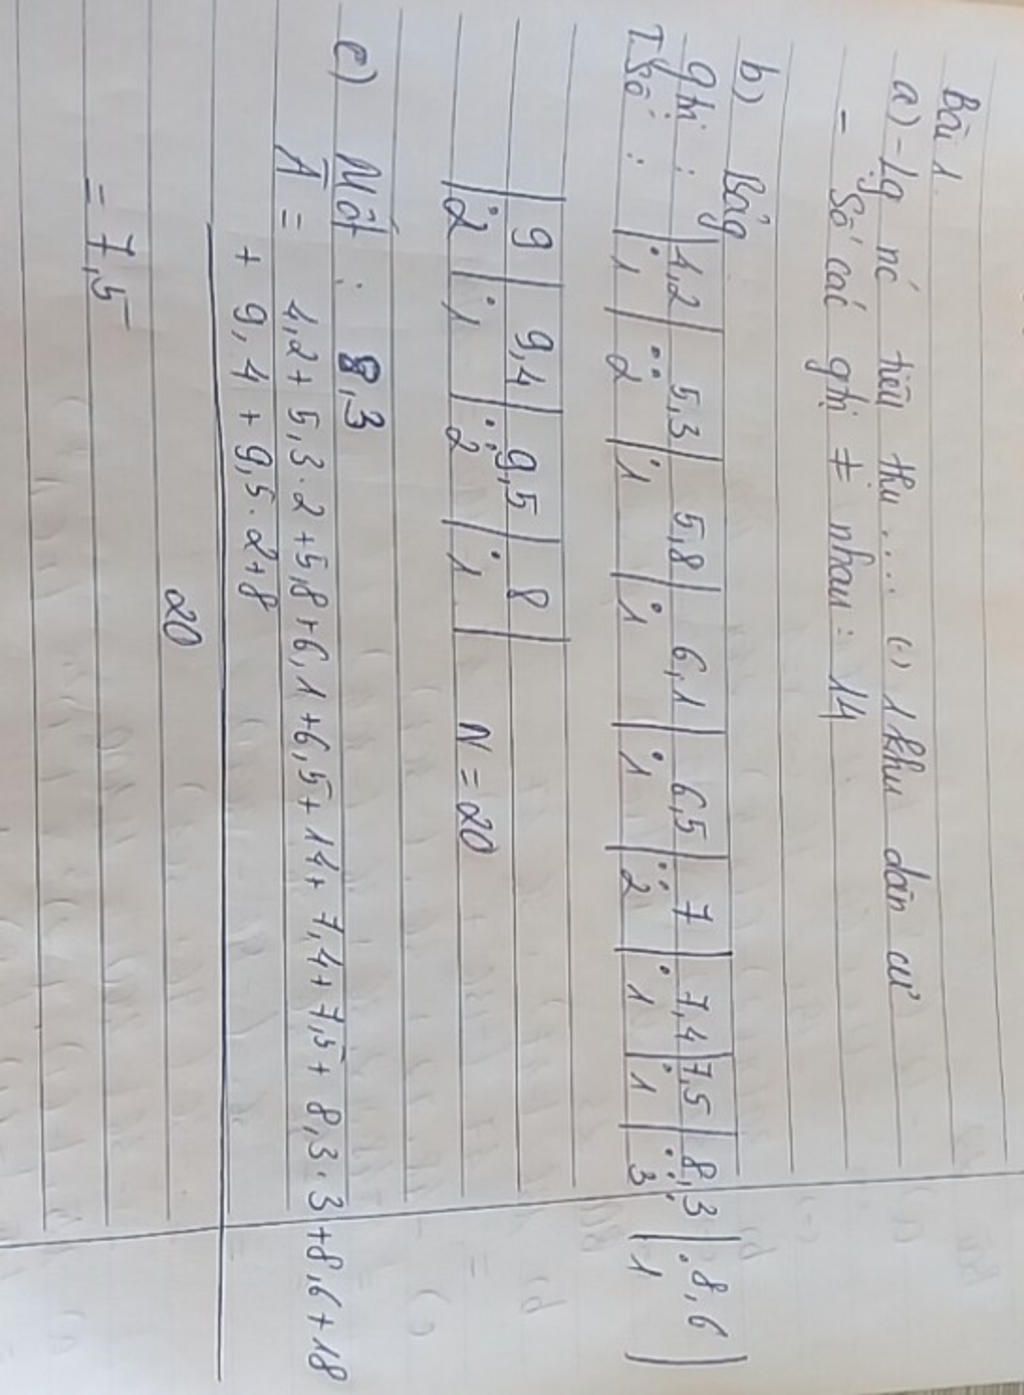 Bài 1.
a) - Lg nc tiêu thụ.... (-) 1 khu dân cư
- Số các gtrị ≠ nhau: 14
b) Bảng
gtrị : | 4,2 | 5,3 | 5,8 | 6,1 | 6,5 | 7 | 7,4 | 7,5 | 8,3 | 8,6 |
T.Số : | 1 | 2 | 1 | 1 | 1 | 2 | 1 | 1 | 3 | 1 |
| 9 | 9,4 | 9,5 | 8 |
| 2 | 1 | 2 | 1 | N = 20
c) Mốt : 8,3
A̅ = 4,2 + 5,3.2 + 5,8 + 6,1 + 6,5 + 14 + 7,4 + 7,5 + 8,3.3 + 8,6 + 18
+ 9,4 + 9,5.2 + 8
20
= 7,5